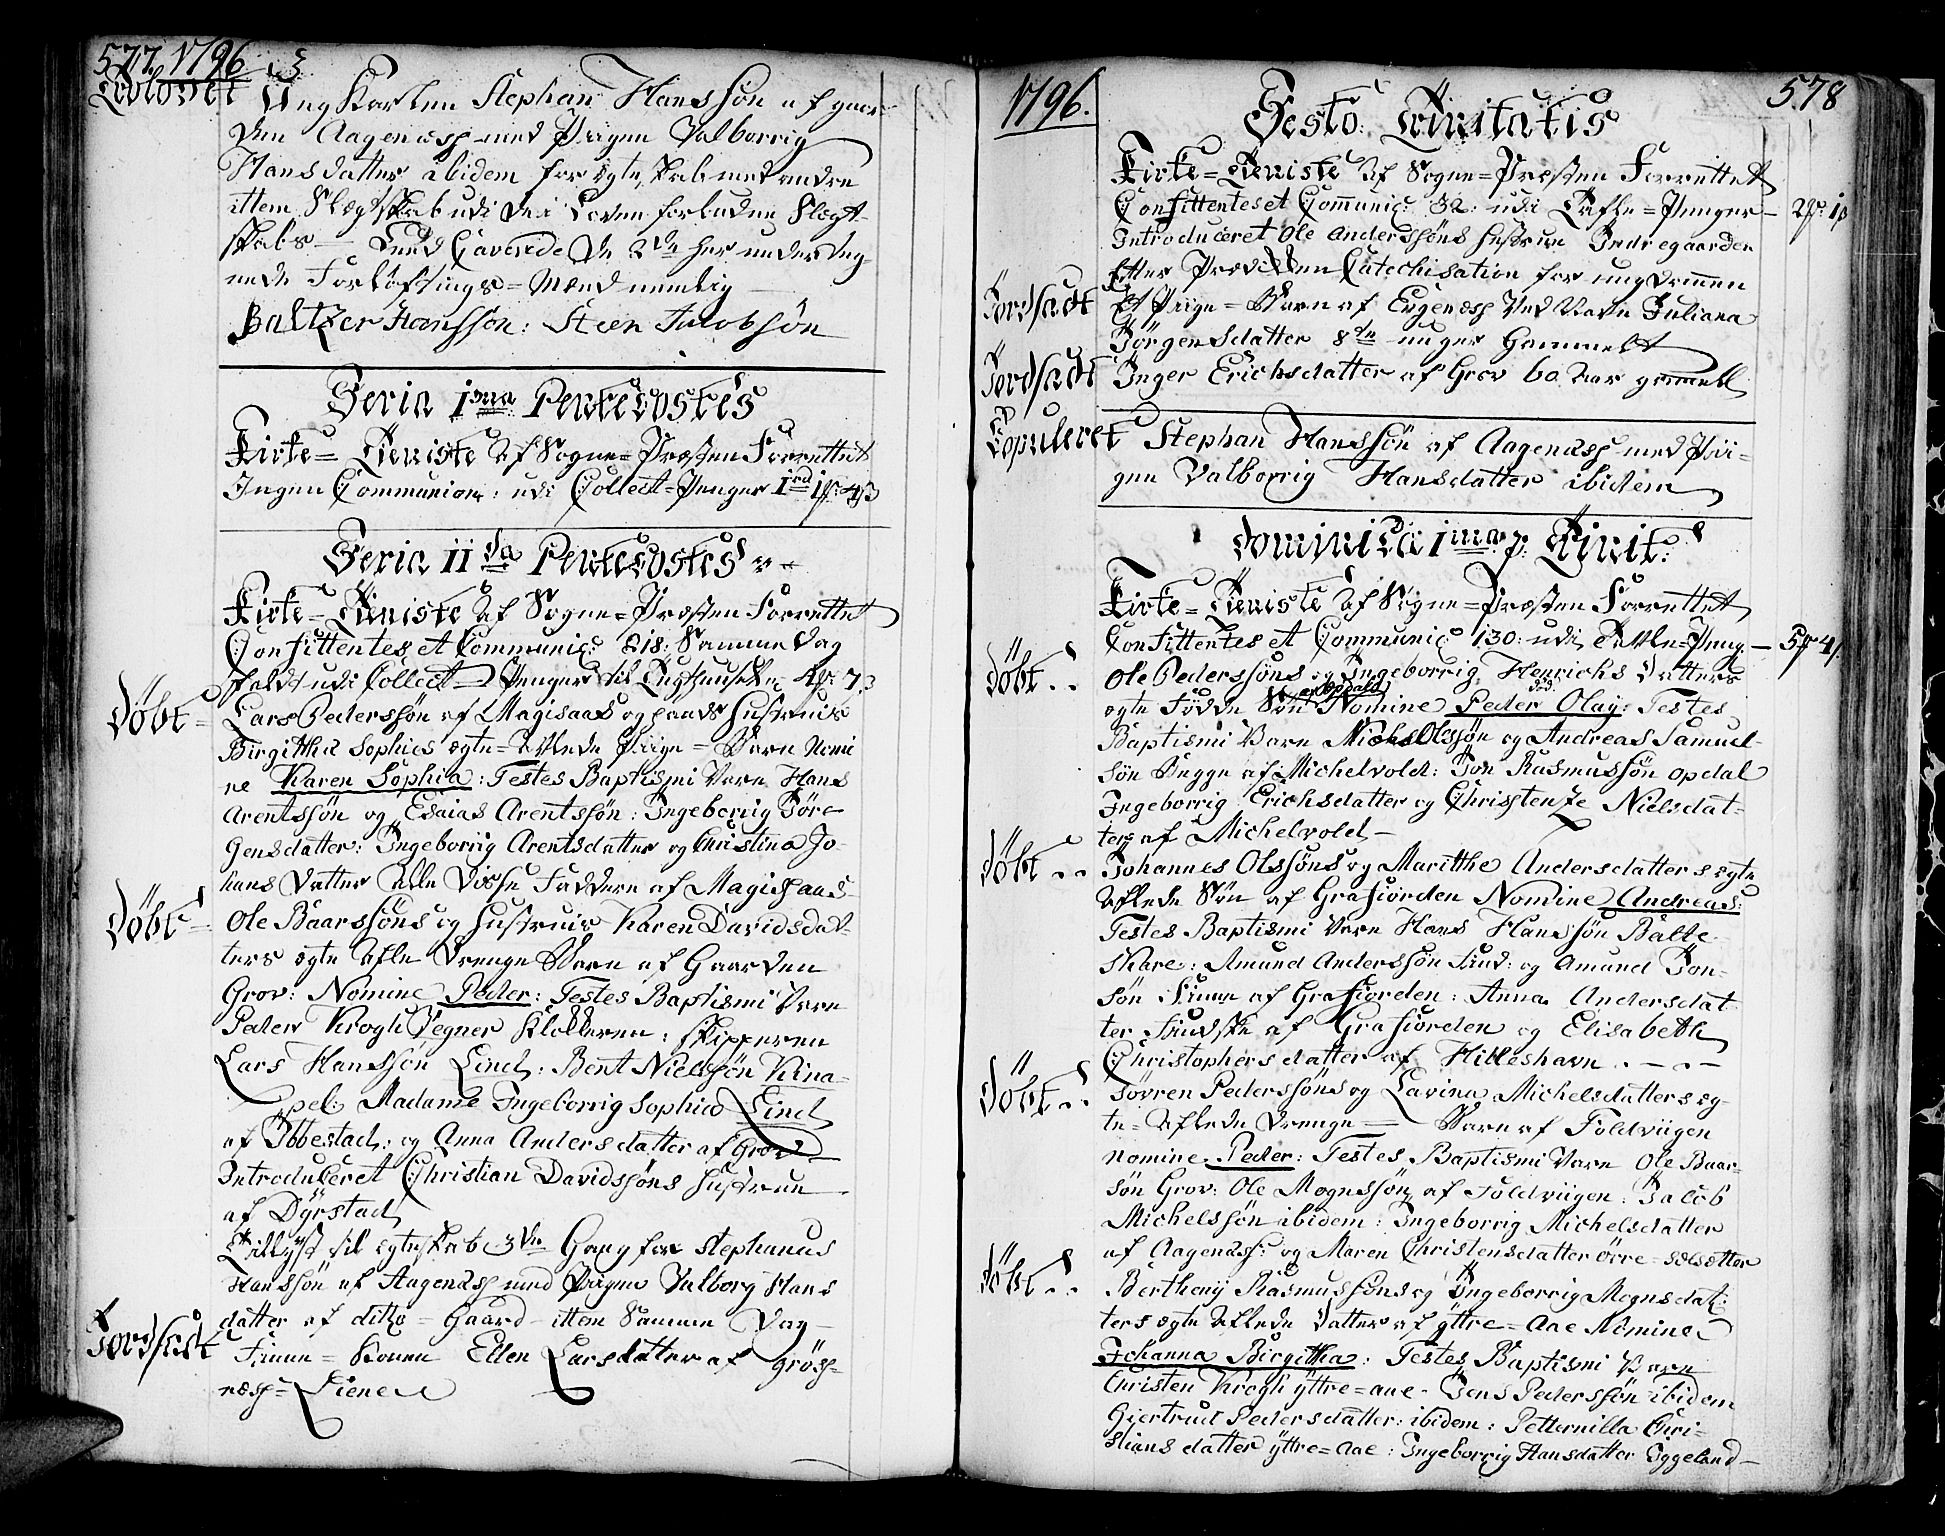 577. 1796
Trolovet
Ung Karlen Stephan Hanssön af gaar-
den Aagenæss med Piigen Valborrig
Hansdatter ibidem for ægteskab med andre
ittem Slægtskab udi de i Loven forbudne Slægt-
skabs — Leed Caverede de 2de her underteg-
nede Forlöftnings-Mænd nemlig —
Baltzer Hanssön: Steen Jacobsön
Feria 1ma Pentecostes
Kirke-Tieniste Af Sogne-Præsten Forrettet
Ingen Communion: udi Collect-Penger 1rd 1ß: 4ß
Feria IIda Pentecostes
Kirke-Tieniste Af Sogne-Præsten Forrettet
Confittentes et Communic: 218: Samme Dag
faldt udi Collect-Penger til Tugthuuset
Döbt =
Lars Pederssön af Magisaas og haads Hustruis
Birgitha Sophies ægte-Aflede Piige-Barn Nomi
ne Karen Sophia: Testes Baptismi Vare Hans
Arentssön og Esaias Arentssön: Ingeborrig Jör-
gensdatter: Ingeborrig Arentsdatter og Christina Jo-
hans Datter Alle Disse Faddere af Magisaas
Döbt =
Ole Baarssöns og Hustruis Karen Davidsdat-
ters ægte Afle Drenge Barn af Gaarden
Grov: Nomine Peder: Testes Baptismi Vare
Peder Krogh Vegner Klokkeren: Skipperen
Lars Hanssön Lind: Bent Nielssön Kina-
pel: Madame Ingeborrig Sophia Lind
af Ibbestad: og Anna Andersdatter af Grov
Introduceret Christian Davidssöns Hustrue
af Dÿrstad
Tillÿst til ægteskab 3die Gang for Stephanus
Hanssön af Aagenæss med Piigen Valborg Hans
datter af ditto-Gaard ittem Samme Dag
Jordfæstet
Finne-Konen Ellen Larsdatter af Gröss-
næss-Liene
1796.
578
Festo Trinitatis
Kirke-Tieniste Af Sogne-Præsten Forrettet
Confittentes et Communic: 32: udi Tafle-Penger — 2ß: 1ß
Introduceret Ole Anderssöns Hustrue Indregaarden
Efter Prædikken Catechisation for ungdommen
Jordfæstet
Et Piige-Barn af Engenæss Ved Navn Juliana
Jörgensdatter 8te uuger Gammelt
Jordfæstet
Inger Erichsdatter af Grov 60 Aar gammel
Copuleret
Stephan Hanssön af Aagenæss med Pii-
gen Valborrig Hansdatter ibidem
Dominica 1ma p: Trinit:
Kirke-Tieniste Af Sogne-Præsten Forrettet
Confittentes et Communic: 130: udi Tafle-Peng: — 5ß 4ß
Döbt
Ole Pederssöns og Ingeborrig Henrichs Datters
af Opdal
ægte Födde Sön Nomine Peder Olay: Testes
Baptismi Vare Michel Olssön og Andreas Samuel-
sön Begge af Michelvold: Jon Rasmussön Opdal
Ingeborrig Erichsdatter og Christenze Nielsdat-
ter af Michelvold —
Döbt
Johannes Olssöns og Maritthe Andersdatters ægte
Aflede Sön af Grafiorden Nomine Andreas:
Testes Baptismi Vare Hans Hanssön Balte-
skare: Amund Anderssön Lund: og Amund Jon-
sön Finne af Grafiorden: Anna Andersdat
ter Findske af Grafiorden og Elisabeth
Christophersdatter af Hilleshavn
Döbt
Sövren Pederssöns og Lavina Michelsdatters æg-
te-Aflede Drenge — Barn af Foldviigen
Nomine Peder: Testes Baptismi Vare Ole Baar-
sön Grov: Ole Mognssön af Foldviigen: Jacob
Michelssön ibidem: Ingeborrig Michelsdatter
af Aagenæss: og Maren Christensdatter örre-Sælsætter
Döbt
Berthony Rasmussöns og Ingeborrig Mognsdat:
ters ægte Aflede Datter af ÿttre-Aae Nomine
Johanna Birgitha: Testes Baptismi Vare
Christen Krogh ÿttre-aae: Jens Pederssön ibidem
Giertrud Pedersdatter: ibidem: Petternilla Chri-
stians datter ÿttre-Aae: Ingeborrig Hansdatter Eggeland